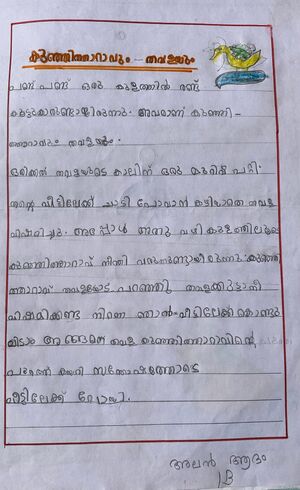 കുഞ്ഞിത്താറാവും - തവളയും
പണ്ട് പണ്ട് ഒരു കുളത്തിൽ രണ്ട്
കൂട്ടുകാരുണ്ടായിരുന്നു. അവരാണ് കുഞ്ഞി-
ത്താറാവും തവളയും.
ഒരിക്കൽ തവളയുടെ കാലിന് ഒരു മുറിവ് പറ്റി.
തന്റെ വീട്ടിലേക്ക് ചാടി പോവാൻ കഴിയാതെ തവള
വിഷമിച്ചു. അപ്പോൾ അതു വഴി കുളത്തിലൂടെ
കുഞ്ഞിത്താറാവ് നീന്തി വരുന്നുണ്ടായിരുന്നു. കുഞ്ഞി
ത്താറാവ് തവളയോട് പറഞ്ഞു തവളക്കുട്ടാ നീ
വിഷമിക്കണ്ട നിന്നെ ഞാൻ വീട്ടിലേക്ക് കൊണ്ടു
വിടാം അങ്ങനെ തവള കുഞ്ഞിത്താറാവിന്റെ
പുറത്ത് കയറി സന്തോഷത്തോടെ
വീട്ടിലേക്ക് പോയി.
അലൻ ആദം
1 B